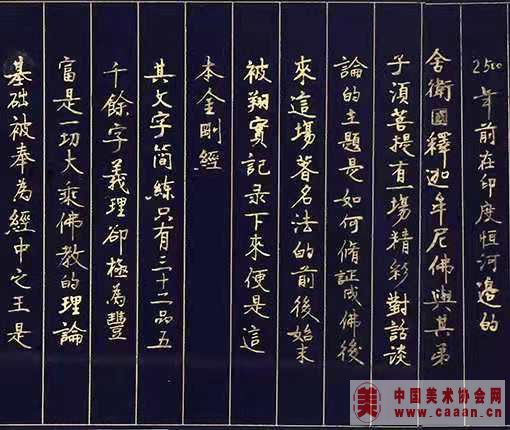 2500年前在印度恒河邊的
舍衛國釋迦牟尼佛與其弟
子須菩提有一場精彩對話談
論的主題是如何脩証成佛後
來這場著名法的前後始末
被翔實記录下來便是這
本金剛經
其文字简練只有三十二品五
千餘字義理卻極為豐
富是一切大乘佛教的理論
基础被奉為經中之王是
美
中国美术协会网
www.caaan.cn